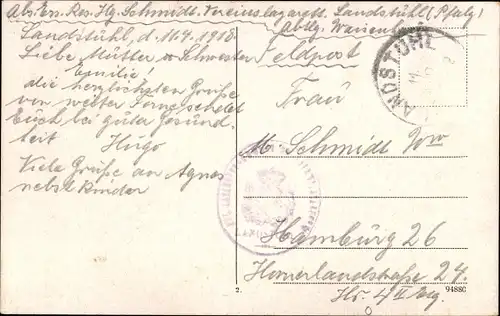 Abs. Ers. Res. Hg. Schmidt. Vereinslazarett. Landstühl (Pfalz)
Abtlg. Waisenh
Landstühl, d. 11.4.1918.
Feldpost
Liebe Mütter, u. Schwester
Emilie
die herzlichsten Grüße
von weiter Ferne sendet
Euch bei guter Gesund-
heit Hugo
Viele Grüße an Agnes
nebst Kinder
LANDSTUHL
Frau
M. Schmidt Ww
Hamburg 26
Hornerlandstraße 24.
Hs. 4 II Etg.
2.
9488C